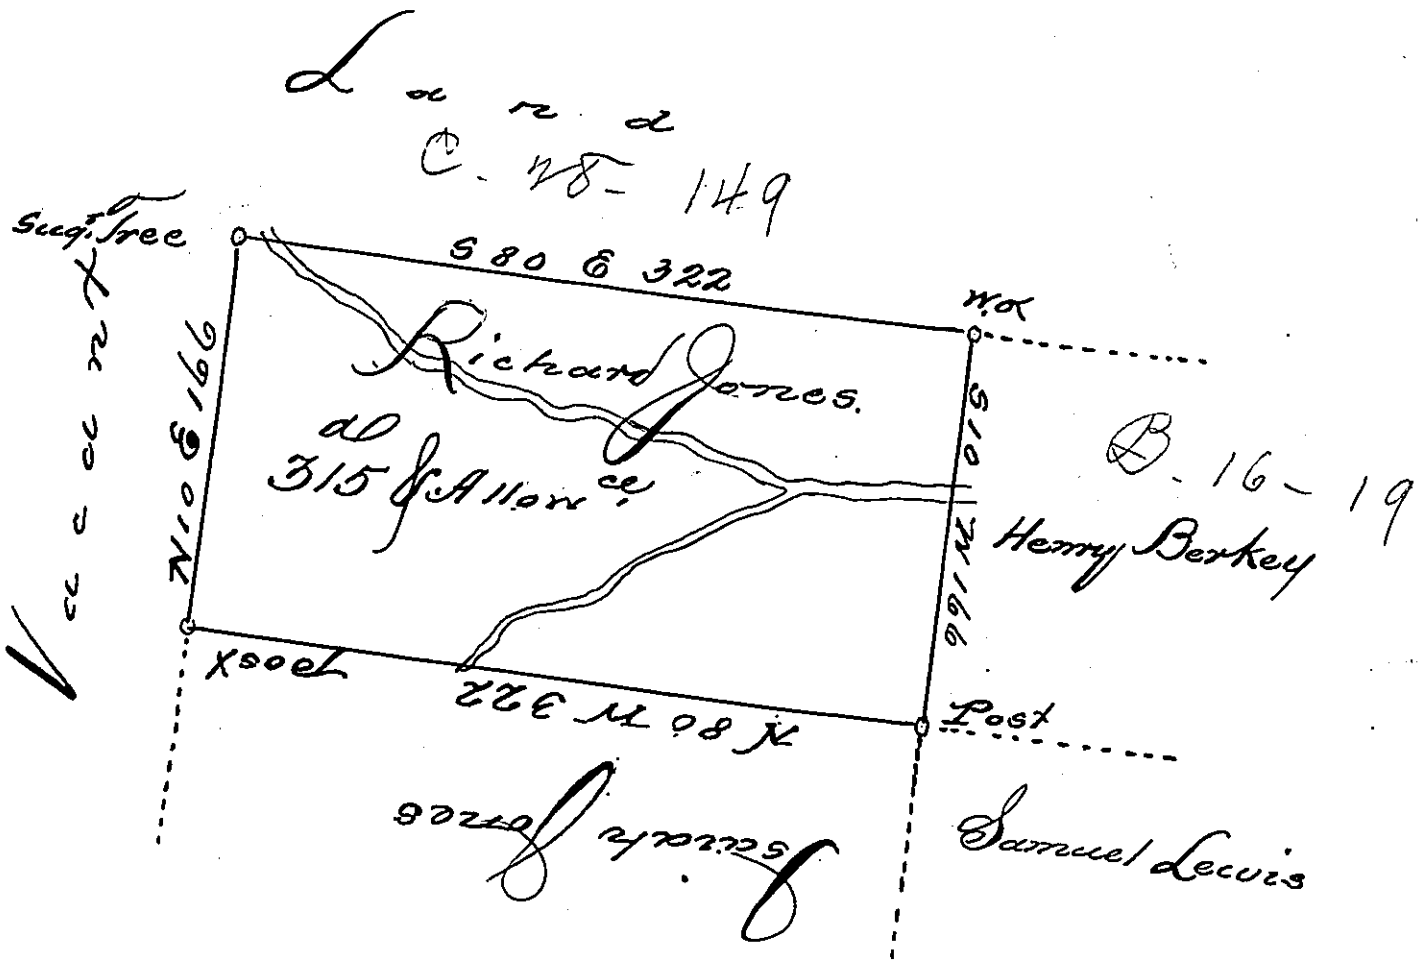 Land
C. 28 - 149
Sugr. Tree
S 80 E 322
W.O
Vacant
N 10 E 166
Richard Jones.
a p
315 & Allowce.
S 10 W 166
B. 16 - 19
Henry Berkey
Post
N 80 W 322
Post
Isaiah Jones
Samuel Lewis